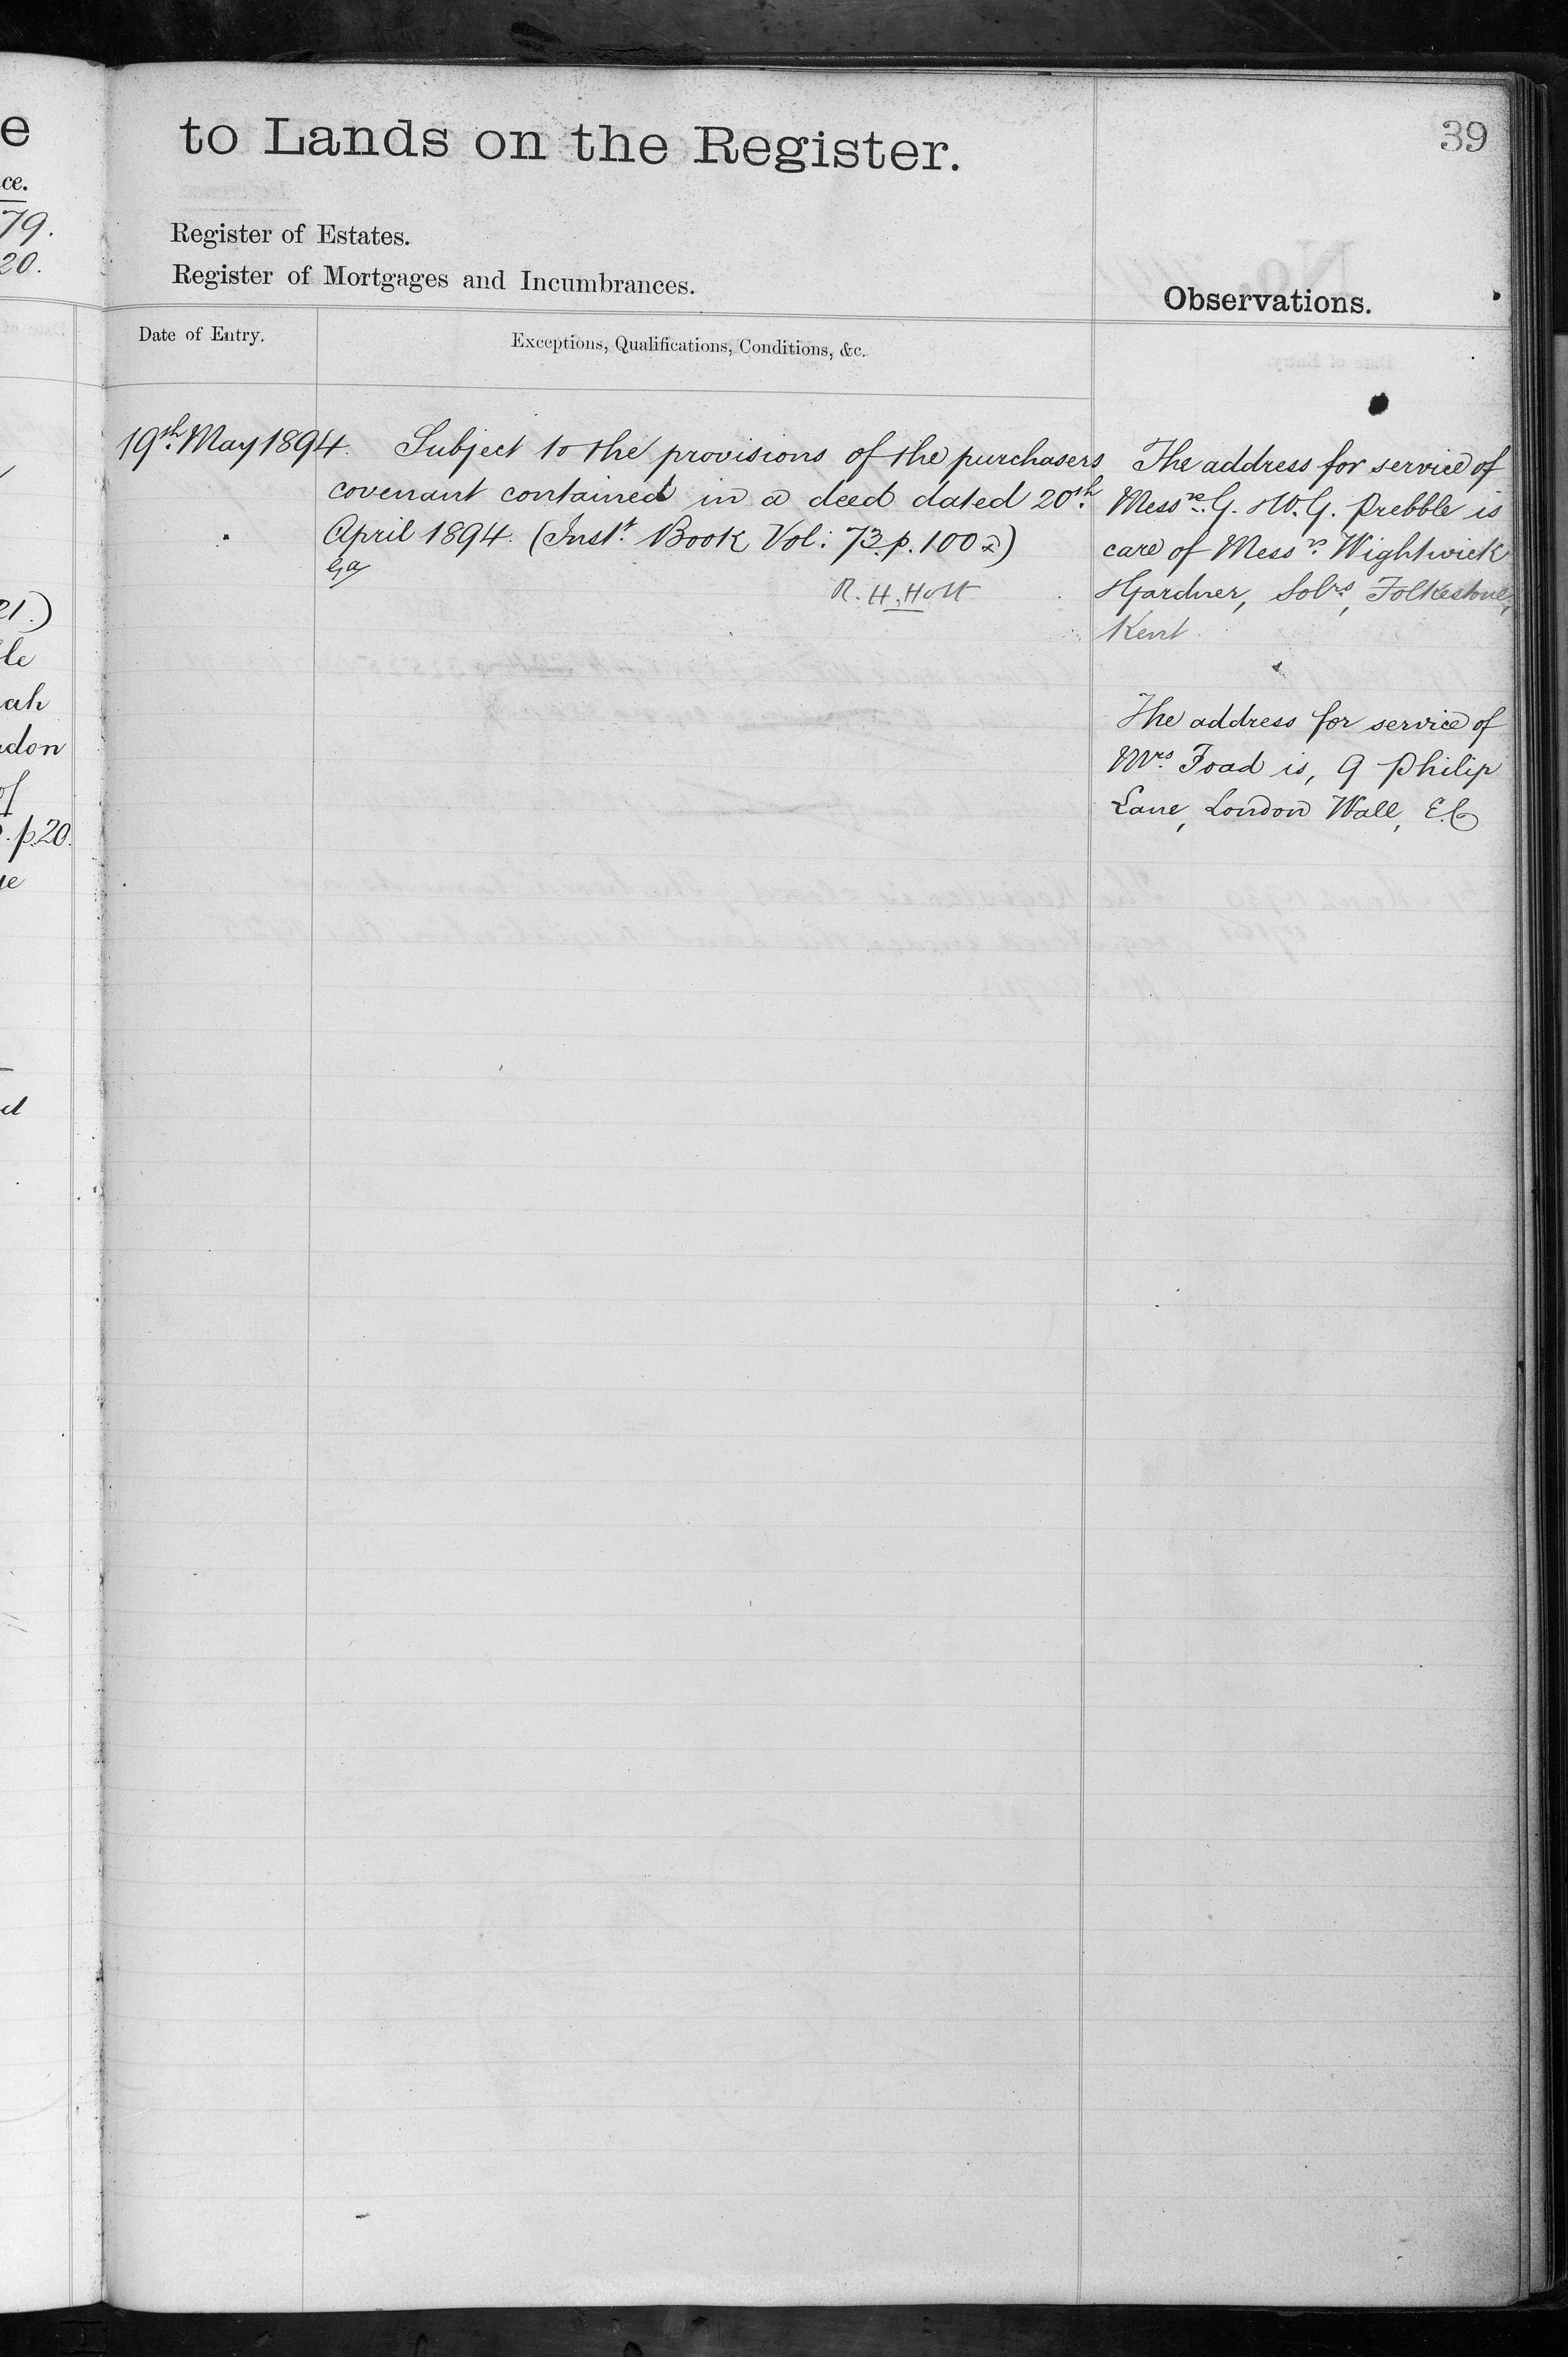 e
ce.
79.
20.
21.)
le
ah
don
of
p.20.
ye
to Lands on the Register.
39
Register of Estates.
Register of Mortgages and Incumbrances.
Observations.
Date of Entry.
Exceptions, Qualifications, Conditions, &c.
19th May 1894. Subject to the provisions of the purchasers
covenant contained in a deed dated 20th
April 1894. (Instt Book Vol: 73. p. 100 )
R. H. Holt
The address for service of
Messrs. G. & W. G. Prebble is
care of Messrs Wightwick
& Gardner, Solrs, Folkestone,
Kent.
The address for service of
Mrs Foad is, 9 Philip
Lane, London Wall, E.C